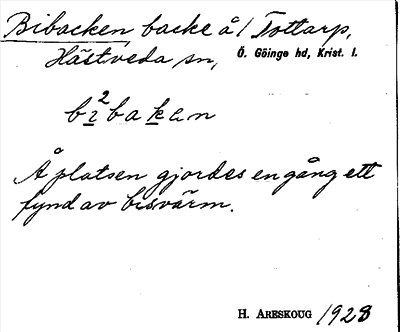 Bibacken backe å/ Tottarp,
Hästveda sn, Ö. Göinge hd, Krist. l.
bi²bakan
Å platsen gjordes en gång ett
fynd av bisvärm.
H. ARESKOUG 1928